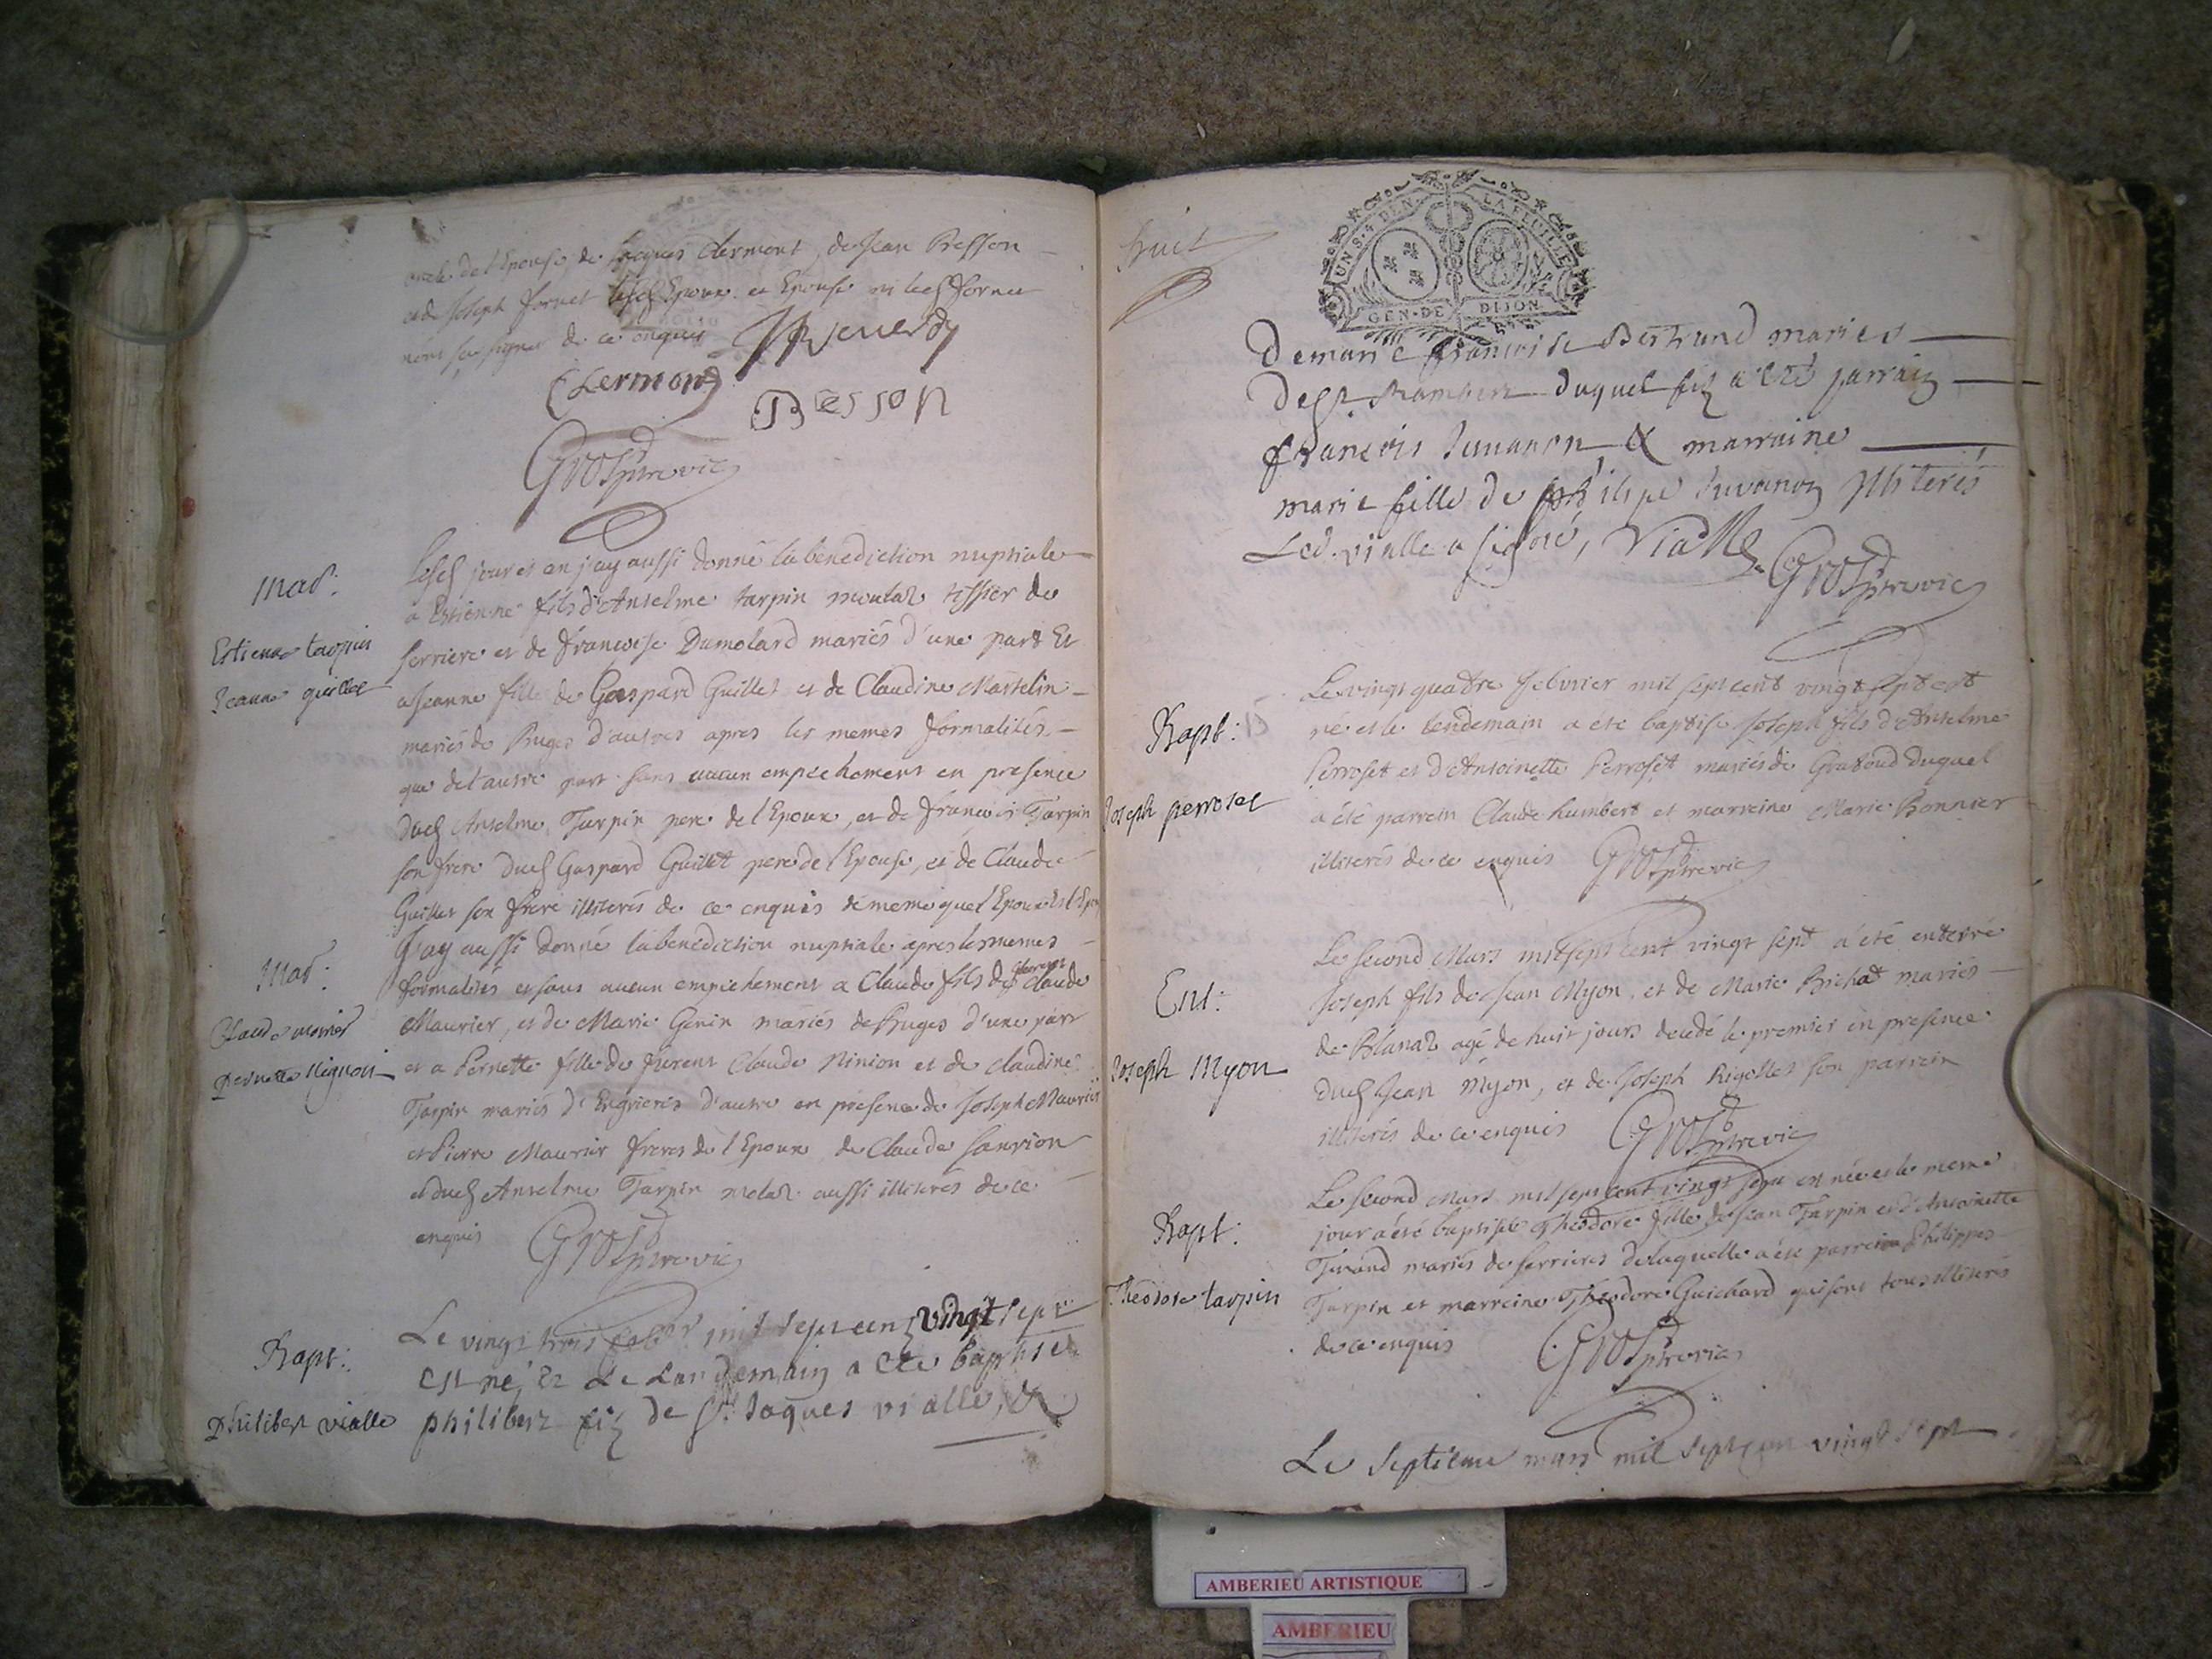 oncle de l'Epouse, de Jacques Clermont, de Jean Besson
et de Joseph fornet lesd Epoux et Epouse ni led fornet
n'ont sçu signer de ce enquis
Clermond
Besson
Grosp vic
Mar:
Estienne tarpin
Jeanne guillet
Lesd jour et an j'ay aussi donné la benediction nuptiale
a Estienne fils d'Anselme tarpin tissier de
serriere et de françoise Dumolard mariés d'une part Et
a Jeanne fille de Gaspard Guillet et de Claudine Martelin
mariés de Bruges d'autres apres les memes formalités
que de l'autre part sans aucun empechement en presence
dud Anselme Tarpin pere de l'Epoux, et de françois Tarpin
son frere dud Gaspard Guillet pere de l'Epouse, et de Claude
Guillet son frere illiterés de ce enquis de meme que l'Epoux et l'Ep
Mar:
Claude morier
Pernette Nignon
J'ay aussi donné la benediction nuptiale apres les memes
formalités et sans aucun empechement a Claude fils de Claude
Maurier, et de Marie Genin mariés de Bruges d'une part
et a Pernette fille de furent Claude Ninion et de Claudine
Tarpin mariés d'Engrieres d'autre en presence de Joseph Maurier
et Pierre Maurier freres de l'Epoux de Claude Sauvion
et dud Anselme Tarpin aussi illiterés de ce
enquis
Grosp vic
Bapt:
Philibert vialle
Le vingt trois mil sept cent vingt sept
est né, et le Landemain a ete baptisé
philibert fiz de Sr. Jaques vialle, &
huit
UN S. 4 DEN. LA FEUILLE
GEN. DE DIJON
De marie françoise Bertrand maries
de St. Rambert duquel fiz a été parrain
françois Juvanon & marraine
marie fille de philipe Juvanon illiterés
Led. vialle a signé, Vialle
Grosp vic
Bapt:
Joseph perroset
Le vingt quatre febvrier mil sept cent vingt sept est
né et le lendemain a eté baptisé Joseph fils d'Anselme
Perroset et d'Antoinette Perroset mariés de Graboud duquel
a été parrein Claude humbert et marreine Marie Bonnier
illiterés de ce enquis Grosp vic
Ent:
Joseph Myon
Le second Mars mil sept cent vingt sept a été enterré
Joseph fils de Jean Myon, et de Marie Bichat mariés
de Blanaz agé de huit jours decedé le premier en presence
dud Jean Myon, et de Joseph Rigollet son parrein
illiterés de ce enquis Grosp vic
Bapt:
Théodore tarpin
Le second Mars mil sept cent vingt sept est née et le meme
jour a été baptisée Theodore fille de Jean Tarpin et d'Antoinette
mariés de serrieres de laquelle a été parrein Philippes
Tarpin et marreine Theodore Guichard qui sont tous illiterés
de ce enquis Grosp vic
Le septième mars mil sept cent vingt sept
AMBERIEU ARTISTIQUE
AMBERIEU